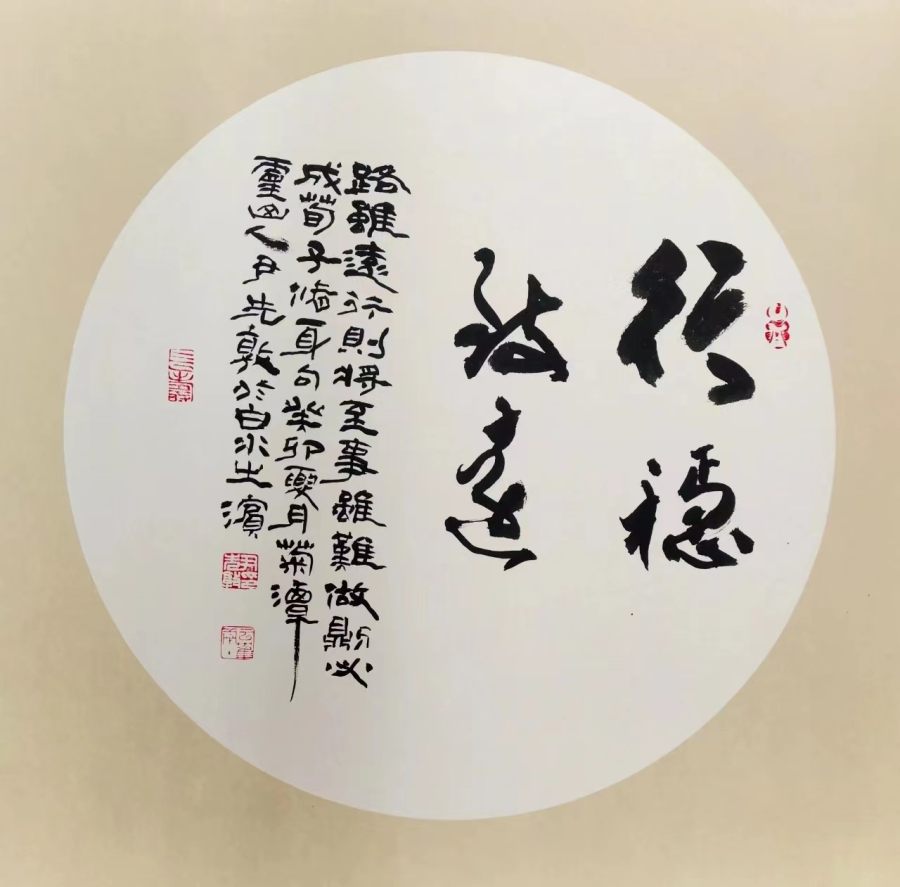 行穩
致遠
路雖遠行則將至事雖難做則必
成荀子脩身句癸卯夏月菊潭
靈山人尹先敦於白水之濱